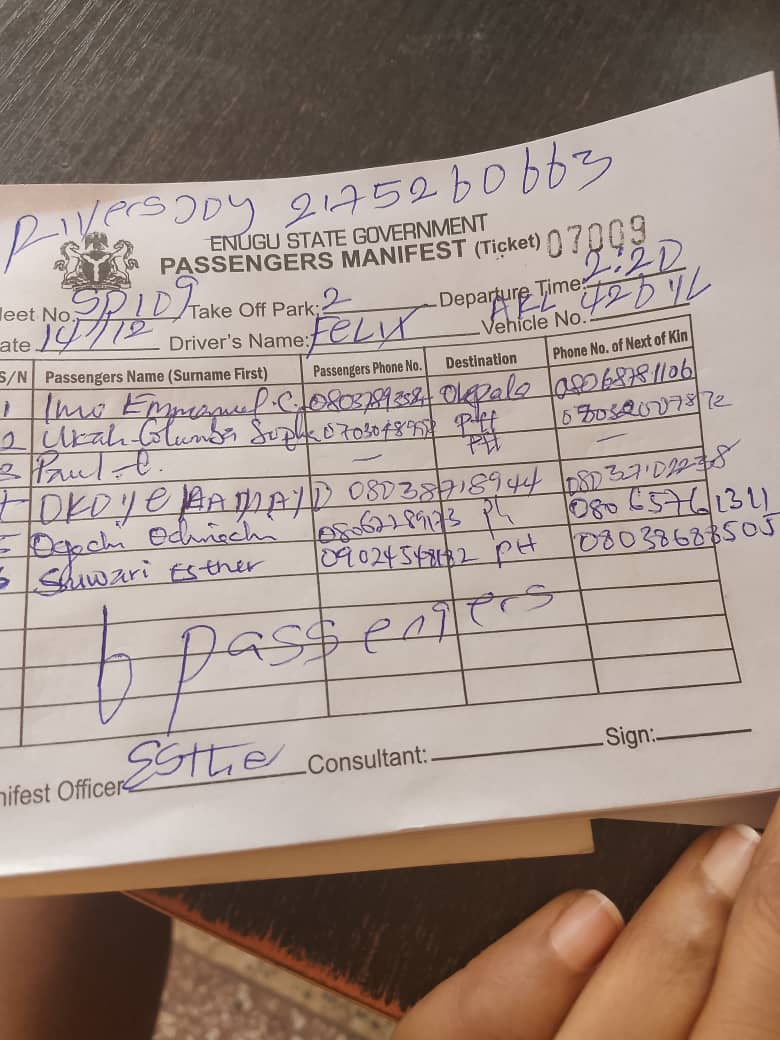 Rivers Joy 2175260663
ENUGU STATE GOVERNMENT
PASSENGERS MANIFEST (Ticket) 07009
leet No. SPID9 Take Off Park: 2 Departure Time: 2:20
ate 14/12 Driver's Name: FELIX Vehicle No.
S/N Passengers Name (Surname First) Passengers Phone No. Destination Phone No. of Next of Kin
1 Imo Emmanuel .C. 08068781106
2 Ukah Columba PH
3 Paul .C. — PH —
OKOYE 08038718944 08037102238
Ogochi 08062289173 PH
Esther PH 08038688505
6 passengers
nifest Officer Esthe Consultant: Sign: